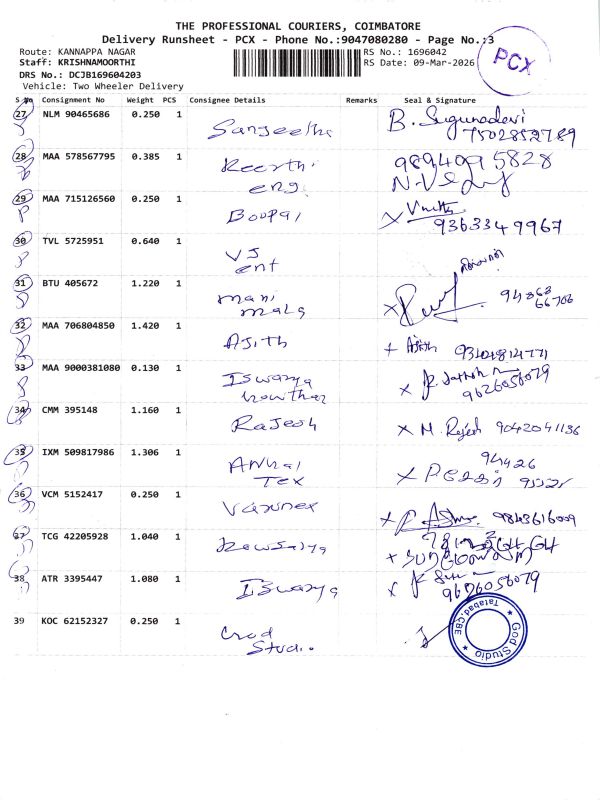 THE PROFESSIONAL COURIERS, COIMBATORE
Delivery Runsheet - PCX - Phone No.:9047080280 - Page No.:3
Route: KANNAPPA NAGAR
RS No.: 1696042
Staff: KRISHNAMOORTHI
RS Date: 09-Mar-2026
DRS No.: DCJB169604203
Vehicle: Two Wheeler Delivery
PCX
S No Consignment No Weight PCS Consignee Details Remarks Seal & Signature
27 NLM 90465686 0.250 1 Sangeetha B. Sugunadevi
7502852789
28 MAA 578567795 0.385 1 Keerthi 9894095828
eng
29 MAA 715126560 0.250 1 Boopal
9363349967
30 TVL 5725951 0.640 1 VJ
ent
31 BTU 405672 1.220 1 mani 94868
mala 66706
32 MAA 706804850 1.420 1 AJith Ajith
33 MAA 9000381080 0.130 1 Iswarya
9626056079
34 CMM 395148 1.160 1 Rajesh M. Rajesh 9042041136
35 IXM 509817986 1.306 1 94426
Tex
36 VCM 5152417 0.250 1 Varunex 9843616009
37 TCG 42205928 1.040 1
38 ATR 3395447 1.080 1 Iswarya
9626056079
39 KOC 62152327 0.250 1
Studio
God Studio
Tatabad, CBE